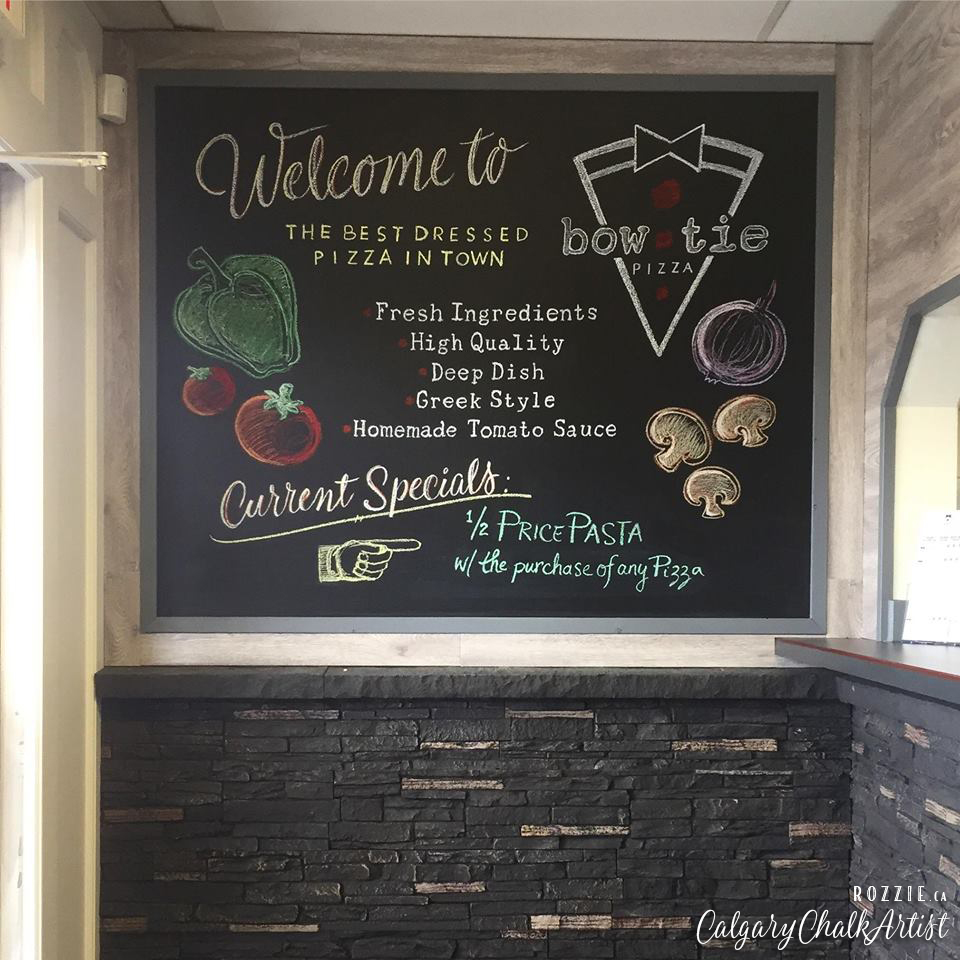 Welcome to
THE BEST DRESSED
PIZZA IN TOWN
bow tie
PIZZA
Fresh Ingredients
High Quality
Deep Dish
Greek Style
Homemade Tomato Sauce
Current Specials:
1/2 PRICE PASTA
w/ the purchase of any Pizza
ROZZIE.CA
CalgaryChalkArtist